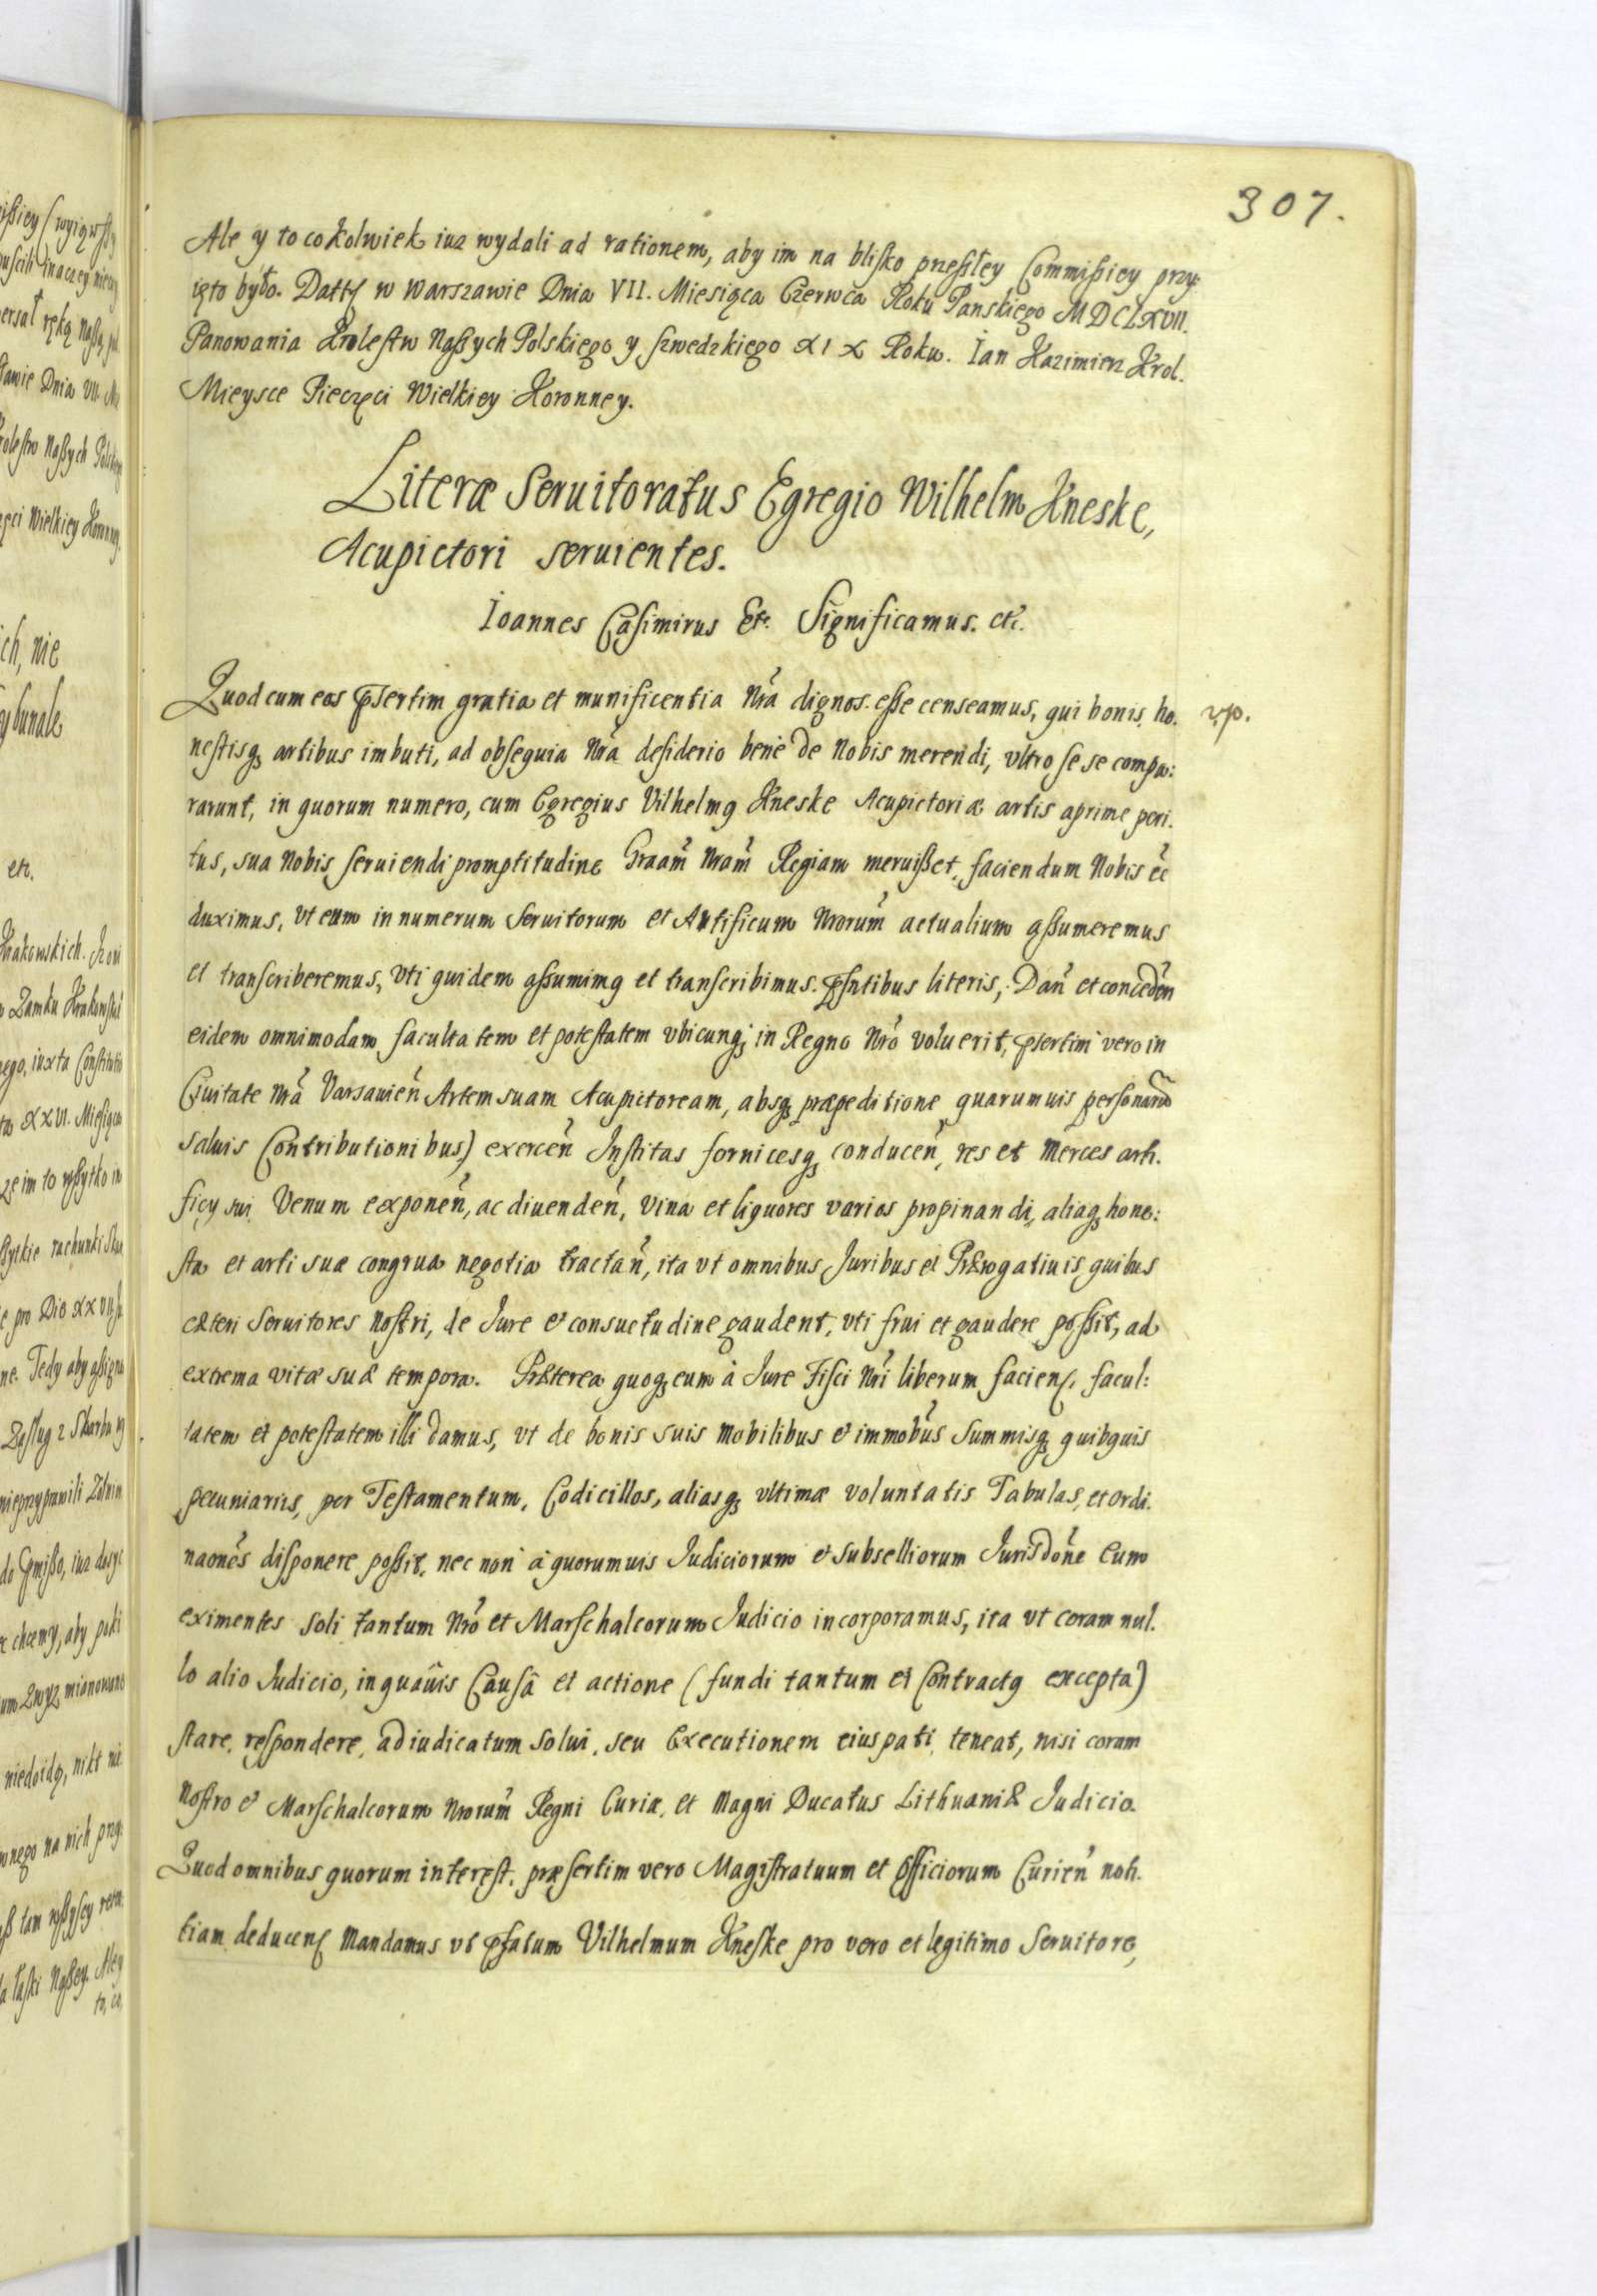 307.
Ale y to cokolwiek iuz wydali ad rationem, aby im na blisko przeszłey Commissiey przy-
ięto było. Datty w Warszawie Dnia VII. Miesiąca Czerwca Roku Panskiego MDCLXVII.
Panowania Krolestw Naszych Polskiego y Szwedzkiego XIX Roku. Ian Kazimierz Krol.
Mieysce Pieczęci Wielkiey Koronney.
Literæ Seruitoratus Egregio Wilhelmo Kneske,
Acupictori seruientes.
Ioannes Casimirus Etc. Significamus. etc.
Quod cum eos pꝛsertim gratia et munificentia Nrã dignos esse censeamus, qui bonis, ho-
nestisq; artibus imbuti, ad obsequia Nrã desiderio bene de Nobis merendi, vltro sese compa:
rarunt, in quorum numero, cum Egregius Vilhelmꝰ Kneske Acupictoriæ artis aprime peri-
tus, sua Nobis seruiendi promptitudine Graam̃ Nram̃ Regiam meruisset, faciendum Nobis eẽ
duximus, vt eum in numerum Seruitorum et Artificum Nrorum̃ actualium assumeremus
et transcriberemus, vti quidem assumimꝰ et transcribimus pꝛsntibus literis, Dañ et concedeñ
eidem omnimodam facultatem et potestatem vbicunq; in Regno Nrõ voluerit, pꝛsertim vero in
Ciuitate Nrã Varsauieñ Artem suam Acupictoream, absq; præpeditione quarumuis personarũ
saluis Contributionibus) exerceñ Institas fornicesq; conduceñ, res et merces arti-
ficij sui Venum exponeñ, ac diuendeñ, vina et liquores varios propinandi, aliaq; hone:
sta et arti suæ congrua negotia tractañ, ita vt omnibus Juribus et Prærogatiuis quibus
cæteri Seruitores Nostri, de Jure et consuetudine gaudent, vti frui et gaudere possit, ad
extrema vitæ suæ tempora. Præterea quoq; eum à Jure Fisci Nrĩ liberum facieñ, facul:
tatem et potestatem illi damus, vt de bonis suis mobilibus et immobũs Summisq; quibquis
pecuniariis, per Testamentum, Codicillos, aliasq; vltimæ voluntatis Tabulas, et Ordi-
naonẽs disponere possit, nec non à quorumuis Judiciorum et subselliorum Jurisdoñe Eum
eximentes soli tantum Nrõ et Marschalcorum Judicio incorporamus, ita vt coram nul-
lo alio Judicio, in quaũis Causâ et actione (fundi tantum et Contractꝰ excepta)
stare, respondere, adiudicatum solui, seu Executionem eius pati teneat, nisi coram
Nostro et Marschalcorum Nrorum̃ Regni Curiæ, et Magni Ducatus Lithuaniæ Judicio.
Quod omnibus quorum interest, præsertim vero Magistratuum et Officiorum Curieñ noti-
tiam deduceñ Mandamus vt pꝛfatum Vilhelmum Kneske pro vero et legitimo Seruitore,